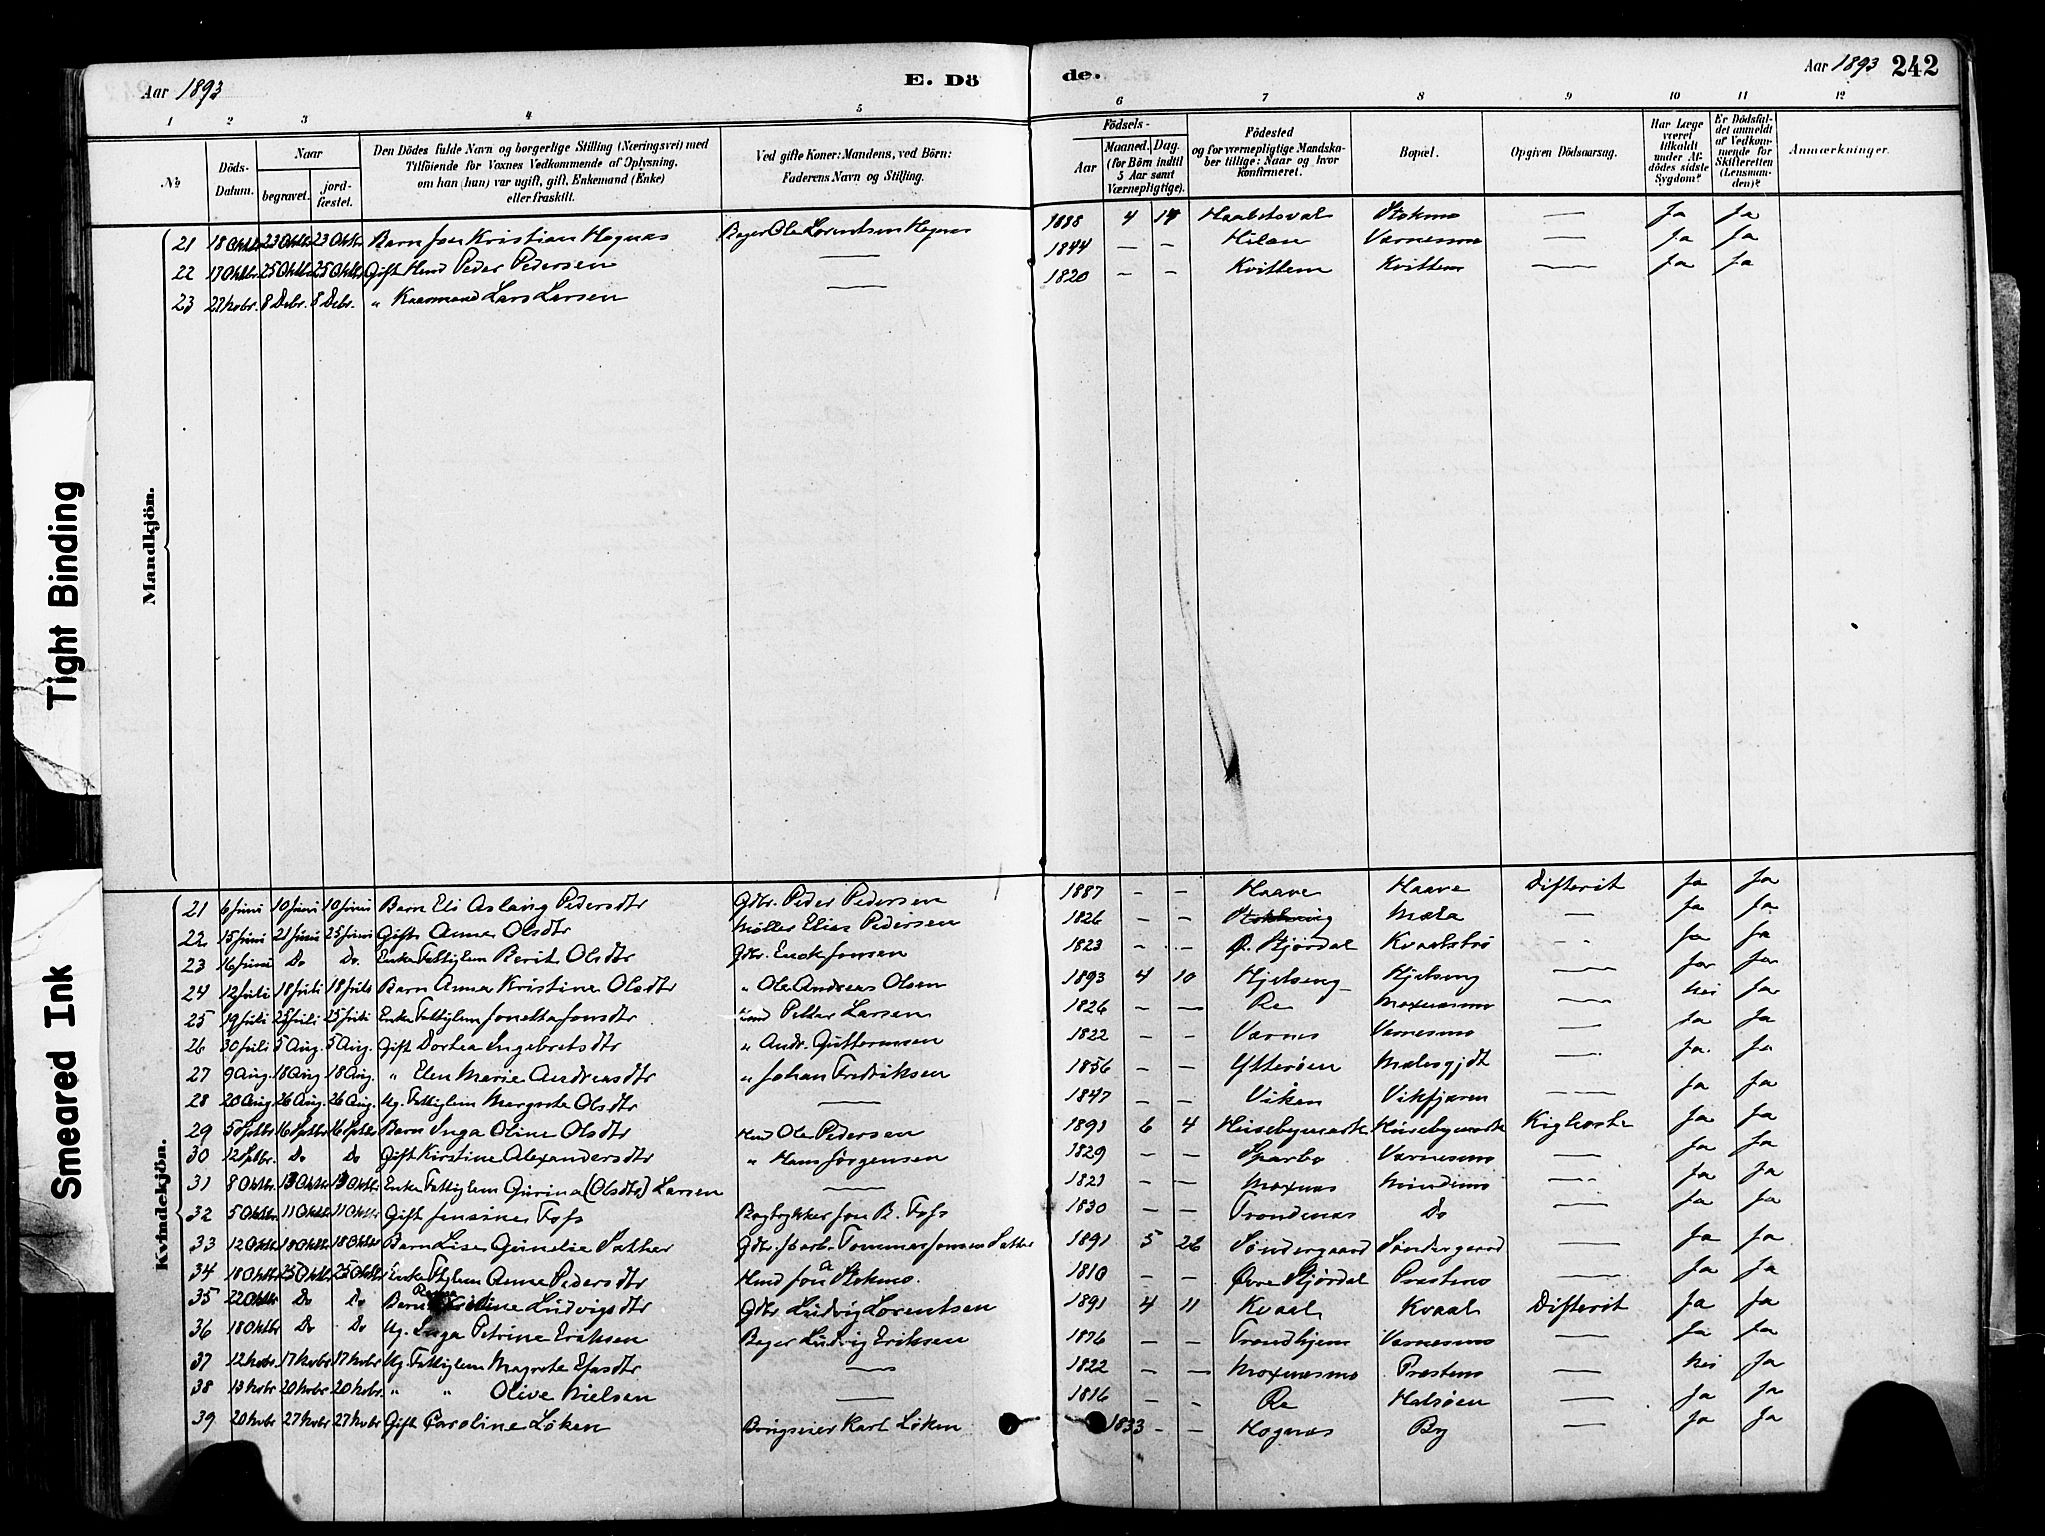 Aar 1893
E. Dö
de.
Aar 1893 242
1 2 3 4 5 6 7 8 9 10 11 12
№
Döds-Datum.
Naar
begravet.
jord-fæstet.
Den Dödes fulde Navn og borgerlige Stilling (Næringsvei) med
Tilföiende for Voxnes Vedkommende af Oplysning,
om han (hun) var ugift, gift, Enkemand (Enke)
eller fraskilt.
Ved gifte Koner: Mandens, ved Börn:
Faderens Navn og Stilling.
Födsels-
Aar
Maaned. Dag.
(for Börn indtil
5 Aar samt
Værnepligtige).
Födested
og for værnepligtige Mandska-
ber tillige: Naar og hvor
konfirmeret.
Bopæl.
Opgiven Dödsaarsag.
Har Læge
været
tilkaldt
under Af-
dödes sidste
Sygdom?
Er Dödsfal-
det anmeldt
af Vedkom-
mende for
Skifteretten
(Lensman-
den)?
Anmærkninger.
Mandkjön.
21 18 Oktbr 23 Oktbr 23 Oktbr Barn Jon Kristian Hognæs Bager Ole Lorentsen Hognes 1888 4 14 Stokmo — Ja Ja
22 17 Oktbr 25 Oktbr 25 Oktbr Gift Hmd Peder Pedersen — 1844 — — Hilan Værnesmo — Ja Ja
23 27 Novbr. 8 Debr. 8 Debr. " Kaarmand Lars Larsen — 1820 — — Kvittem Kvittem — Ja Ja
Kvindekjön.
21 6 Juni 10 Juni 10 Juni Barn Eli Aslaug Pedersdtr Gdbr. Peder Pedersen 1887 — — Haave Haave Difterit Ja Ja
22 15 Juni 21 Juni 25 Juni Gift Anne Olsdtr Møller Elias Pedersen 1826 — — Mæla — Ja Ja
23 16 Juni Do Do. Enke Fattiglem Berit Olsdtr Gdbr. Erik Jonsen 1823 — — Ø. Stjørdal — Ja Ja
24 12 Juli 18 Juli 18 Juli Barn Anna Kristine Olsdtr " Ole Andreas Olsen 1893 4 10 Hjelseng Hjelseng — Ja Ja
25 19 Juli 25 Juli 25 Juli Enke Fattiglem Jonetta Jonsdtr Hmd Petter Larsen 1826 — — Re Moxnesmo — Nei Ja
26 30 Juli 5 Aug. 5 Aug. Gift Dortea Ingebretsdtr " Andr. Guttormsen 1822 — — Værnes Værnesmo — Ja Ja
27 9 Aug. 18 Aug 18 Aug. " Elen Marie Andreasdtr " Johan Fredriksen 1856 — — Ytterøen — Ja Ja
28 20 Aug 26 Aug. 26 Aug. Ug. Fattiglem Margrete Olsdtr — 1847 — — Viken Vikfjæren — Ja Ja
29 5 Septbr 16 Septbr 16 Septbr Barn Inga Oline Olsdtr Hmd Ole Pedersen 1891 6 4 Husebymark Husebymark Kighoste Ja Ja
30 12 Septbr. Do Do Gift Kirstine Alexandersdtr " Hans Jørgensen 1829 — — Sparbo Værnesmo — Ja Ja
31 8 Oktbr. 13 Oktbr 13 Oktbr. Enke Fattiglem Gurina (Olsdtr) Larsen — 1821 — — Moxnes — Ja Ja
32 5 Oktbr. 11 Oktbr 11 Oktbr Gift Jensine Tofs Bogtrykker Jon B. Tofs 1830 — — Trondenæs Do — Ja Ja
33 12 Oktbr 18 Oktbr 18 Oktbr Barn Lise Gunelie Sæther Gdbr. Tommas Jonsen Sæther 1891 5 26 Søndergaard Søndergaard — Ja Ja
34 18 Oktbr 25 Oktbr 25 Oktbr Enke Anne Pedersdtr Hmd Jon Stokmo. 1810 — — Øvre Stjørdal Præstmo — Ja Ja
35 22 Oktbr Do Do Barn Ludvigsdtr Gdbr Ludvig Lorentsen 1891 4 11 Kvaal Kvaal Difterit Ja Ja
36 18 Oktbr Do Do Ug. Inga Petrine Eriksen Bager Ludvig Eriksen 1876 — — Trondhjem Værnesmo — Ja Ja
37 12 Novbr 17 Novbr 17 Novbr Ug Fattiglem Magrete Efasdtr — 1822 — — Moxnesmo Præstmo — Nei Ja
38 13 Novbr 20 Novbr 20 Novbr. " " Olive Nielsen — 1816 — — Re Halsøen — Ja Ja
39 20 Novbr 27 Novbr 27 Novbr Gift Caroline Løken Karl Løken 1833 — — Hognes By — Ja Ja
Tight Binding
Smeared Ink